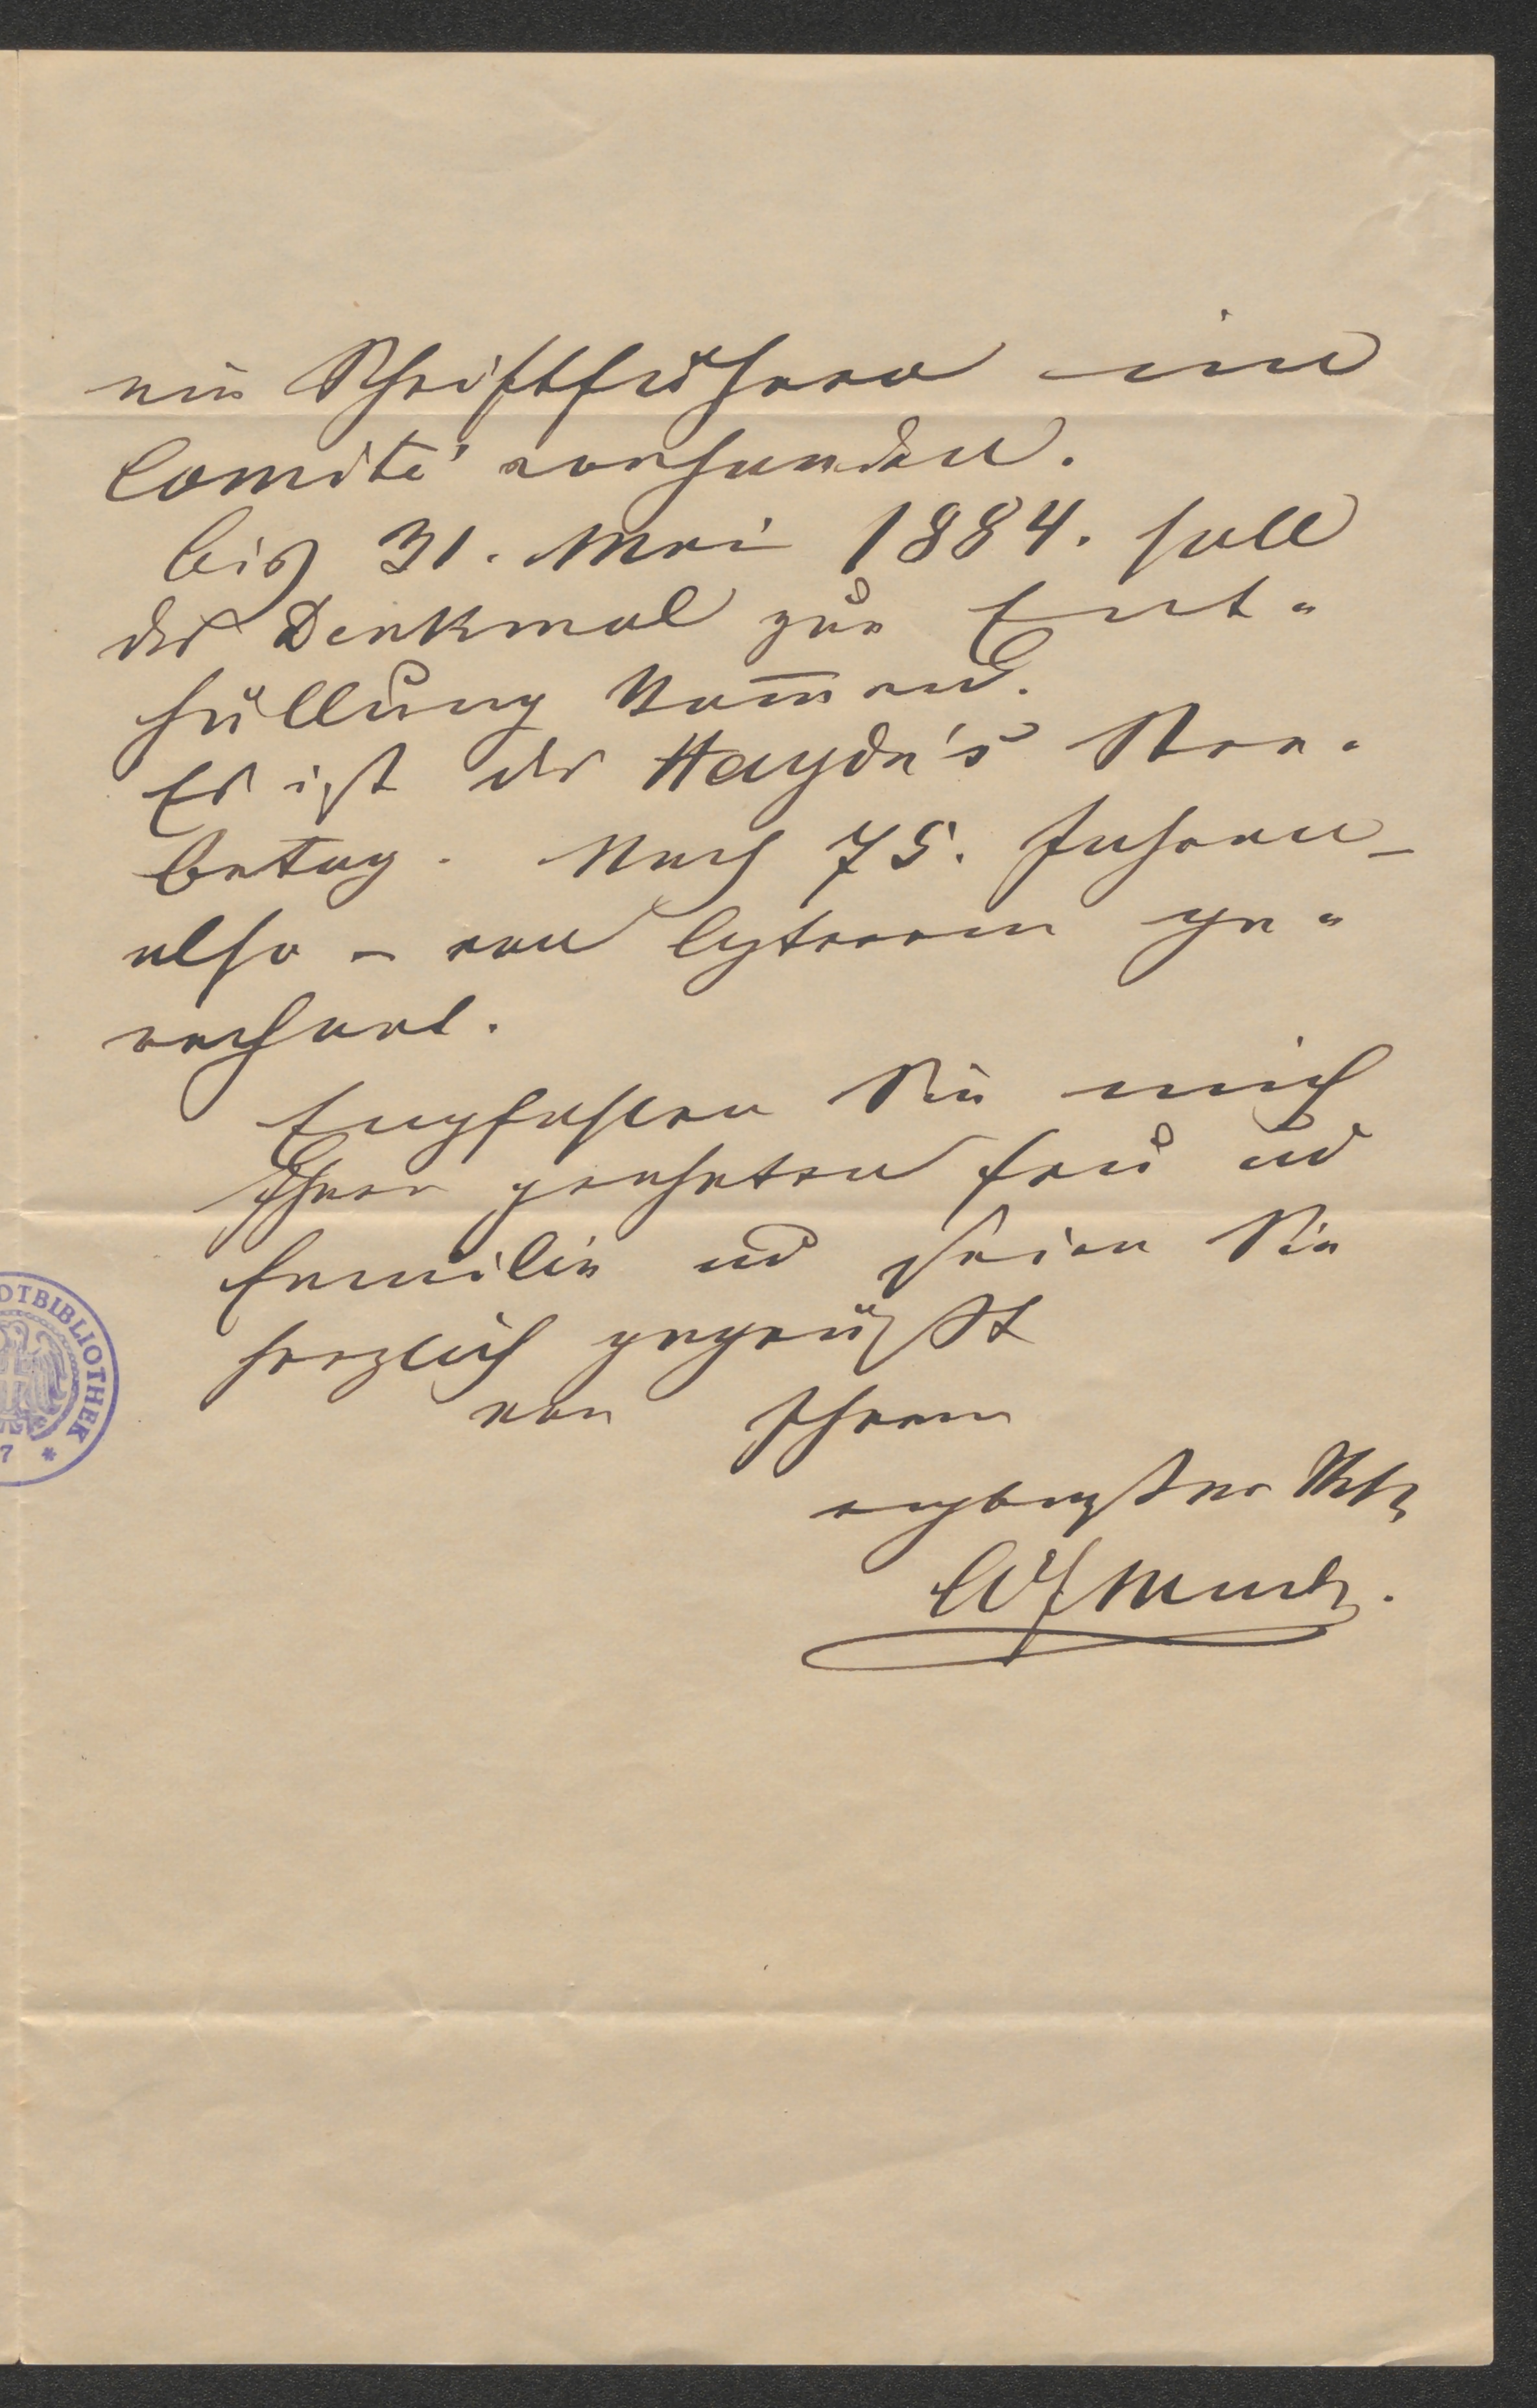 ein Schriftführer im
Comité vorhanden.
bis 31. Mai 1884. soll
das Denkmal zur Ent=
hüllung kom̅en.
Es ist der Haydn's Ster=
betag. Nach 75. Jahren –
also – von letzterem ge=
rechnet.
Empfehlen Sie mich
Ihrer geehrten Frau und
Familie und seien Sie
herzlich gegrüßt
von Ihrem
ergebensten
DTBIBLIOTHEK
7 *